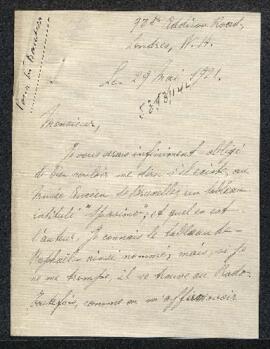 Londres, W. 14.
Le 29 mai 1921.
5393/142
Monsieur,
Je vous serais infiniment obligé
de bien vouloir me dire s'il existe, au
Musée Ancien de Bruxelles un tableau
intitulé "Spasimo"; et quel en est
l'auteur. Je connais le tableau de
Raphaël ainsi nommé; mais, si je
ne me trompe, il se trouve au Prado.
Toutefois, comme on m'affirme avoir